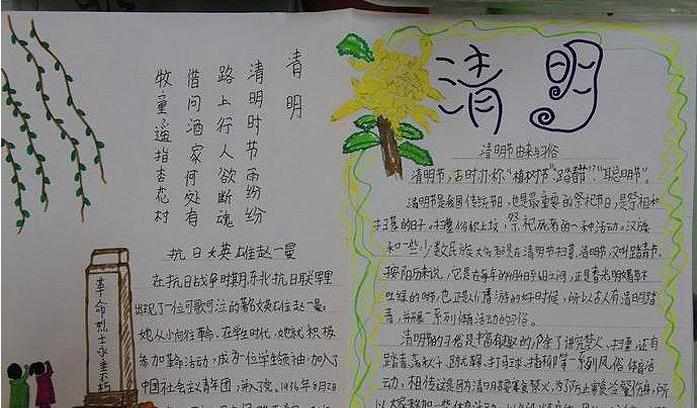 清明
清明时节雨纷纷
路上行人欲断魂
借问酒家何处有
牧童遥指杏花村
抗日大英雄赵一曼
在抗日战争时期,东北抗日联军里
出现了一位可歌可泣的著名女英雄赵一曼。
她从小向往革命,在学生时代,她就积极
参加革命活动,成为一位学生领袖,加入了
中国社会主义青年团,
革命烈士永垂不朽
清明
清明节由来与习俗
清明节,古时亦称“植树节”、“踏青节”、“聪明节”。
清明是我国传统节日,也是最重要的祭祀节日,是祭祖和
扫墓的日子。扫墓俗称上坟,祭祀死者的一种活动。汉族
和一些少数民族大多都是在清明节扫墓。清明节,又叫踏青节,
按阳历来说,它是在每年的4月4日至6日之间,正是春光明媚草木
吐绿的时节,也正是人们春游的好时候,所以古人有清明踏
青,并开展一系列体育活动的习俗。
清明节的习俗是丰富有趣的,除了讲究禁火、扫墓,还有
踏青、荡秋千、蹴鞠、打马球、插柳等一系列风俗体育活
动,相传这是因为清明节要寒食禁火,为了防止寒食冷餐伤身,所
以大家参加一些体育活动,